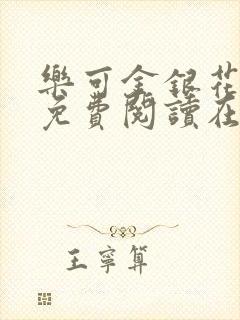 樂可金銀花
免費閱讀在
王寧算